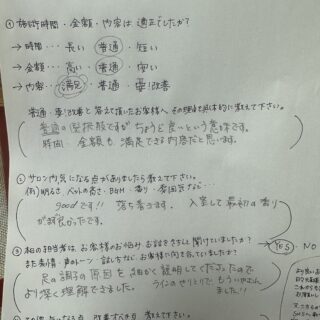 ① 施術時間・金額・内容は適正でしたか?
→ 時間・・・ 長い・普通・短い
→ 金額・・・ 高い・普通・安い
→ 内容・・・ 満足・普通・要!改善
普通・要!改善と答えて頂いたお客様へ その理由を具体的に教えて下さい。
普通の選択肢ですが ちょうど良いという意味です。
時間・金額も満足できる内容だと思います。
サロン内気になる点がありましたら教えて下さい。
例)明るさ・ベッドの高さ・BGM・香り・雰囲気など・・・
goodです!! 落ち着きます。 入室して最初の香り
が good 良かったです。
私の担当者は、お客様のお悩み・お話をきちんと聞けていましたか?
YES・NO
また表情・声のトーン・話し方など、お客様に向き合えていましたか?
足の調子の原因を細かく説明してくださったので
より深く理解できました。
ました!!
教えて下さい。